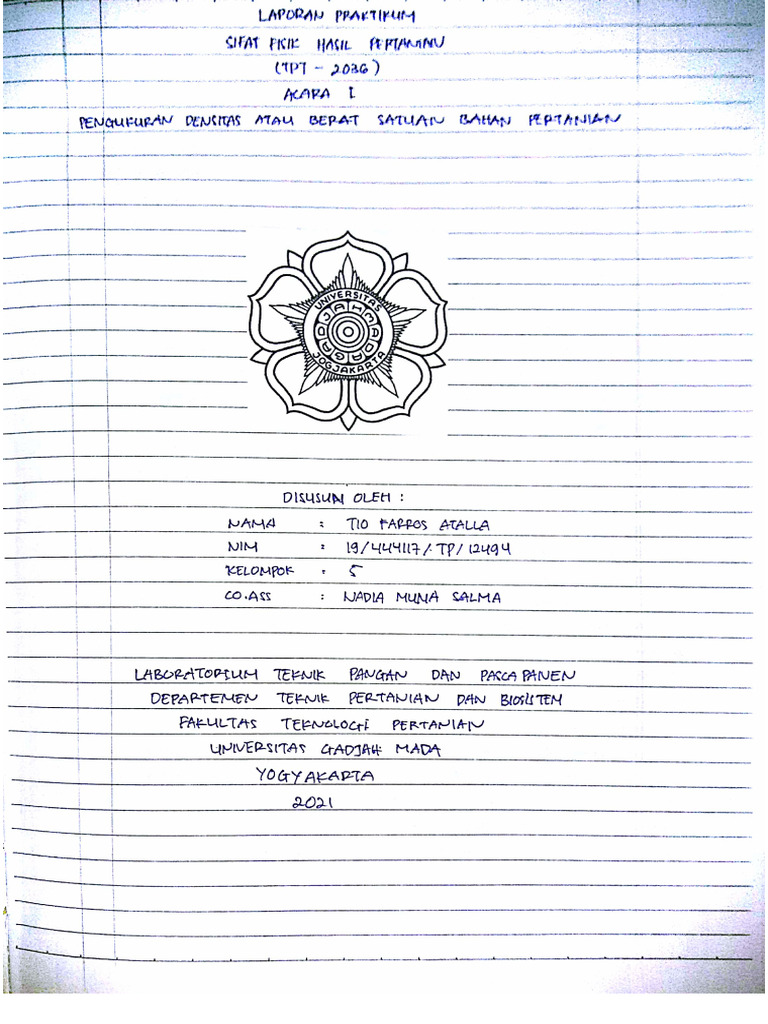 LAPORAN PRAKTIKUM
SIFAT FISIK HASIL PERTANIAN
(TPT - 2036)
ACARA I
PENGUKURAN DENSITAS ATAU BERAT SATUAN BAHAN PERTANIAN
UNIVERSITAS
GADJAH MADA
JOGJAKARTA
DISUSUN OLEH :
NAMA : TIO FARROS ATALLA
NIM : 19/444117/TP/12494
KELOMPOK : 5
CO.ASS : NADIA MUNA SALMA
LABORATORIUM TEKNIK PANGAN DAN PASCA PANEN
DEPARTEMEN TEKNIK PERTANIAN DAN BIOSISTEM
FAKULTAS TEKNOLOGI PERTANIAN
UNIVERSITAS GADJAH MADA
YOGYAKARTA
2021